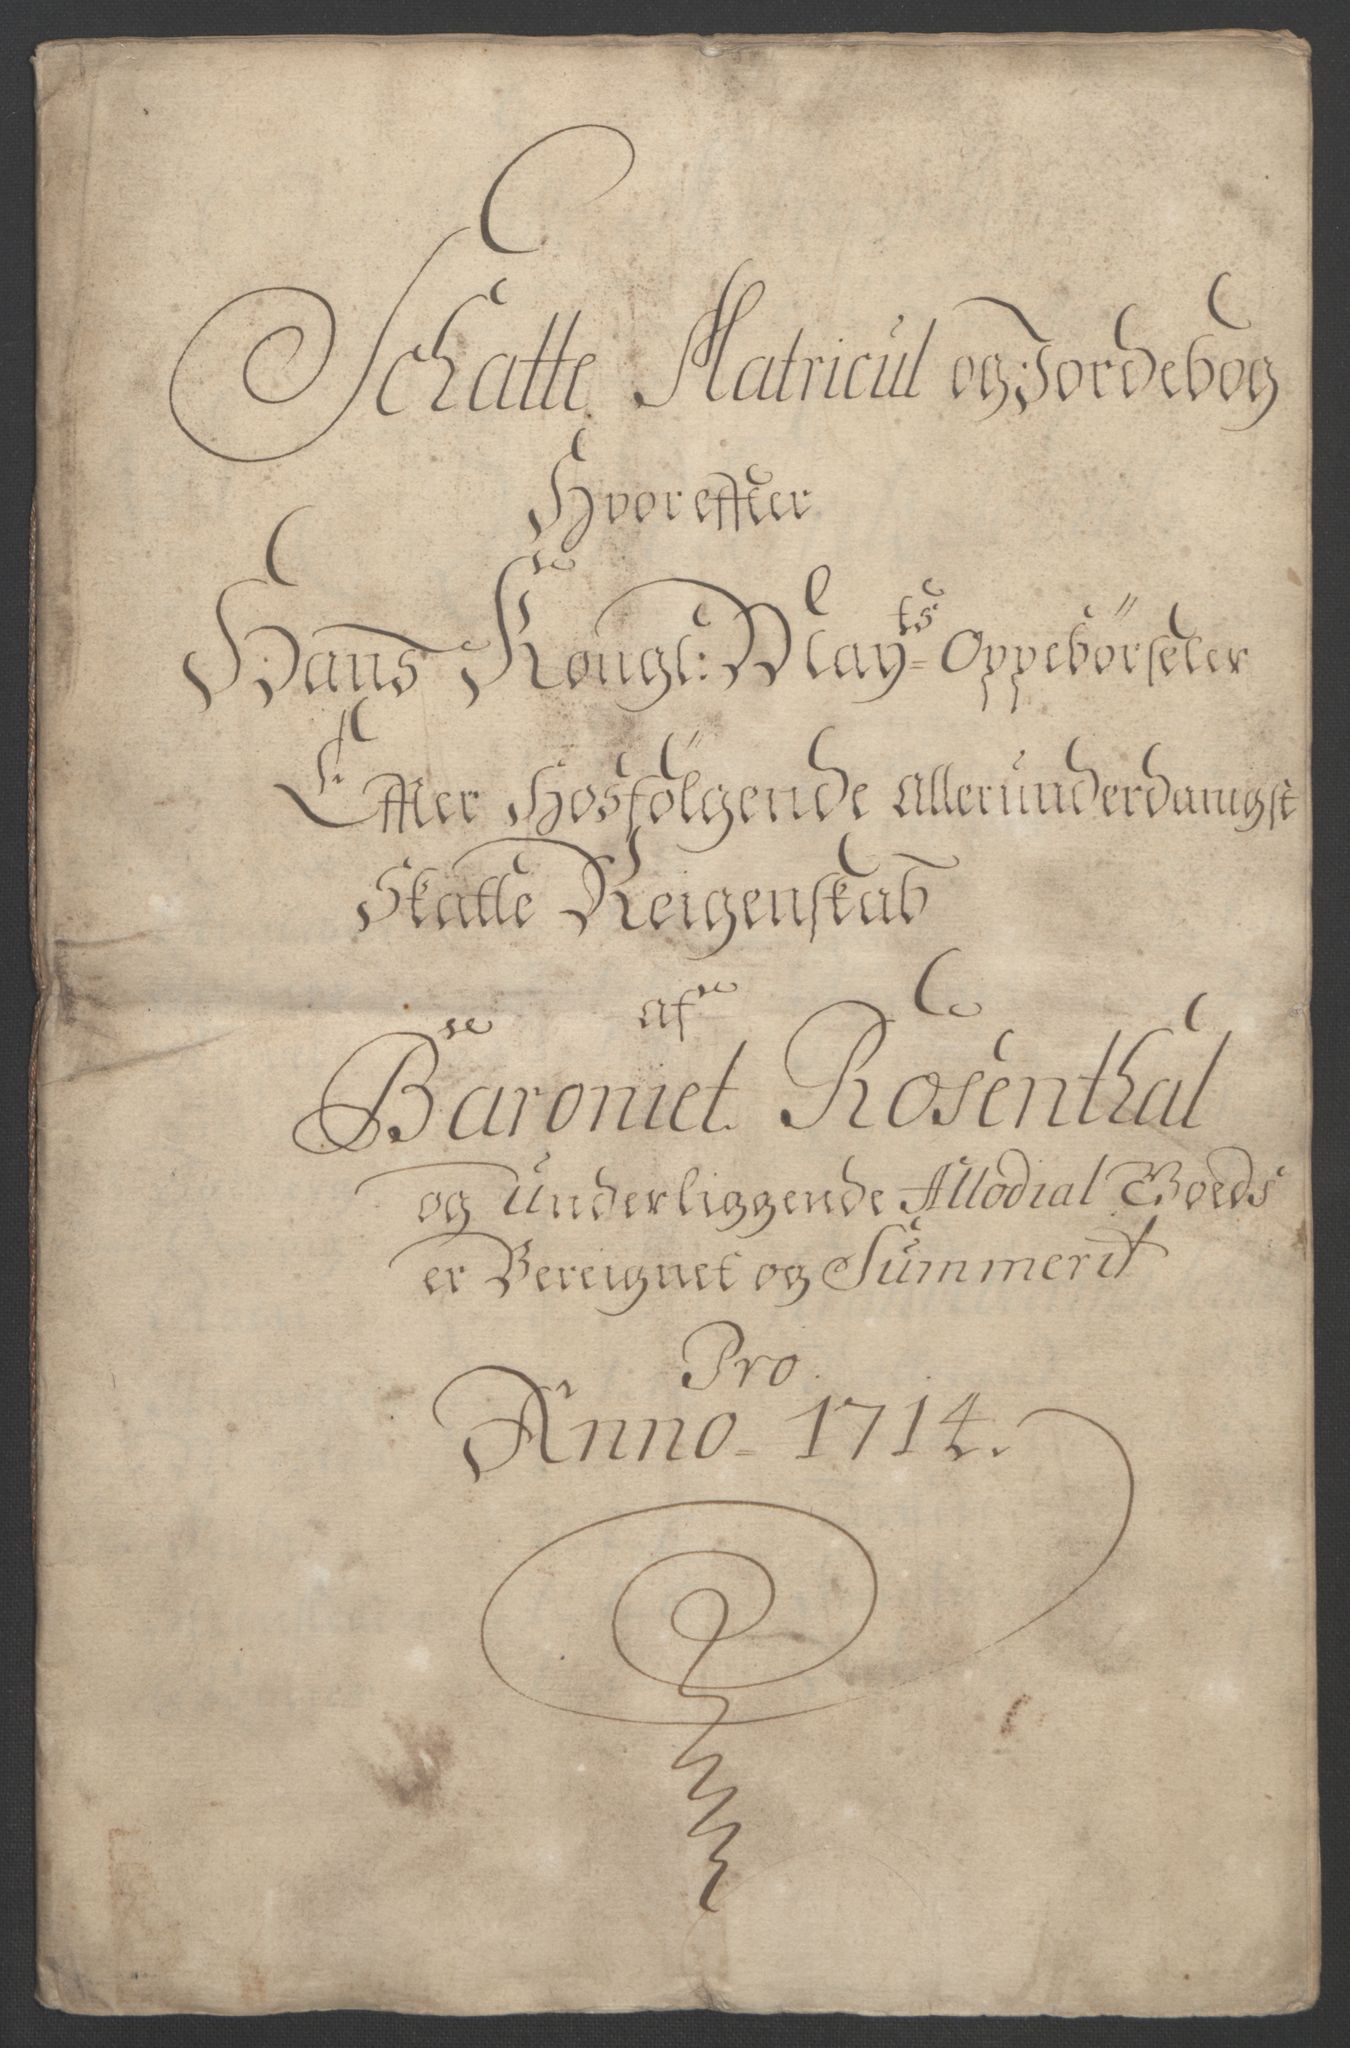 Schatte Matricul og Jordebog
Hvoreffter
Hans Kongl: May=ts Oppebörseler
Effter Hosfölgende Allerunderdanigst
Skatte Reigenskab
af
Baroniet Rosenthal
og Underliggende Allodial Goeds
er Bereignet og Summerit
Pro
Anno 1714.